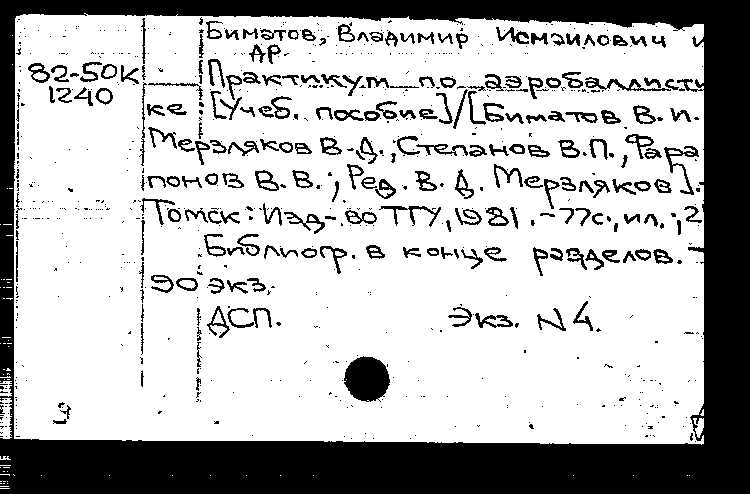 Биматов, Владимир Исмаилович и
др.
82-50К
1240
Практикум по аэробаллисти
ке: [Учеб. пособие]/[Биматов В.И.
Мерзляков В.Д., Степанов В.П., Фара
понов В.В.; Ред. В.Д. Мерзляков].-
Томск: Изд-во ТГУ, 1981.-77с., ил.; 2
Библиогр. в конце разделов. -
90 экз.
ДСП. Экз. N4.